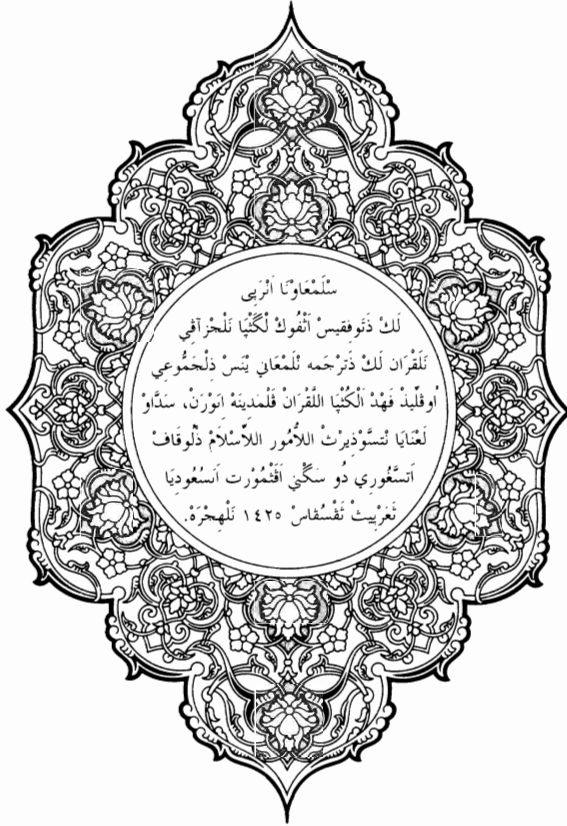 سْلَمْعَاوْنَا اَنْرَبِّي
لَكْ ذَتَوفقيسْ اَثْفُوكْ لْكَثْبَا نَلْحْزَآفِي
نَلَقْرَان لَكْ ذَتَرْجَمه نْلَمْعَانِي يْنَسْ ذِلْجَمُّوعِي
اُوقَلّيذْ فَهْدْ اَلْكْثْبَا اللَّقْرَانْ قْلَمَدينَهْ اِنَوْرَنْ، سَدَّاوْ
لَعْنَايَا نْتسَّوْذيرْثْ اللأُمُور اللاّسْلاَمْ ذْلَوقَافْ
اَتسَّغُورِي ذُو سَكَّنِي اَقْثْمُورْت اَسُعُودِيَا
ثَعْرَبِيثْ ثَقْسُقَاسْ ١٤٢٥ نَلْهِجْرَهْ.